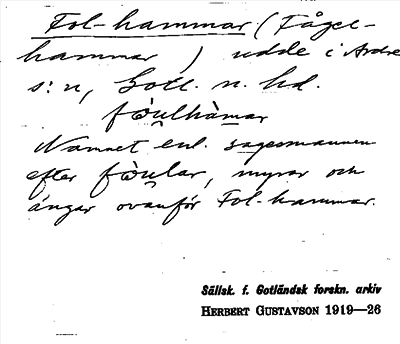 Fol-hammar (Fågel-
hammar) udde i Ardre
s:n, Gotl. n. hd.
fòulhàmar
Namnet enl. sagesmannen
efter fòular, myrar och
ängar ovanför Fol-hammar.
Sällsk. f. Gotländsk forskn. arkiv
HERBERT GUSTAVSON 1919—26